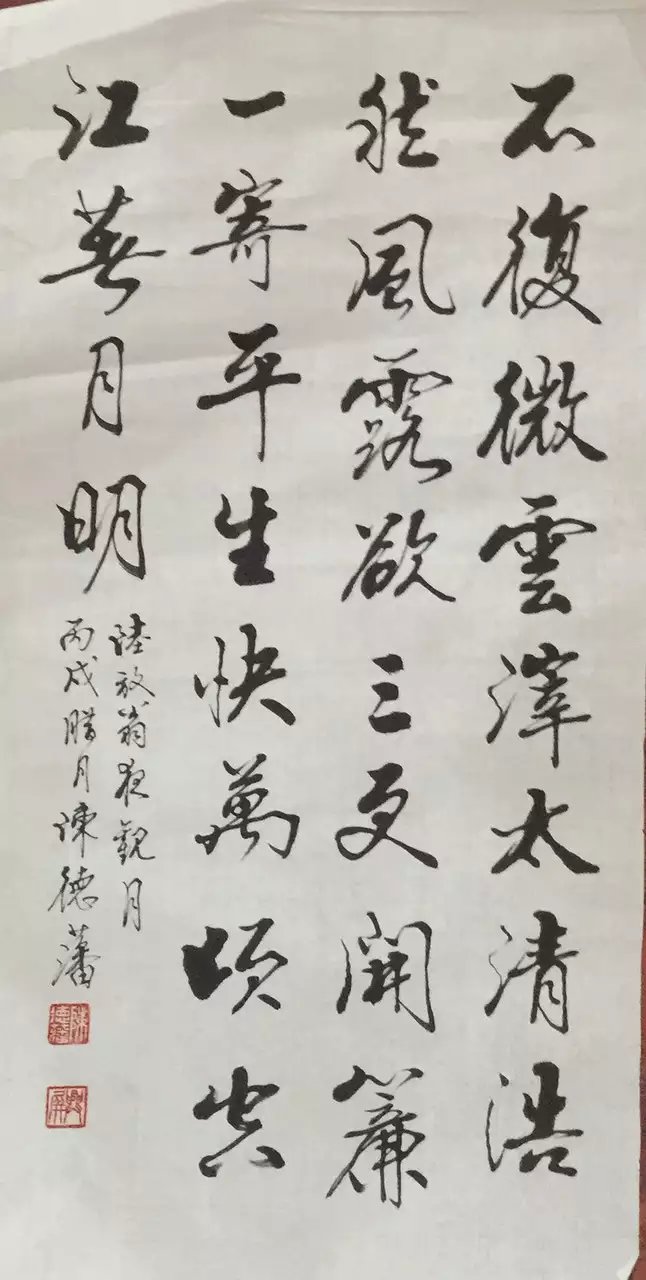 不復微雲滓太清浩
然風露欲三更開簾
一寄平生快萬頃空
江著月明
陸放翁夜觀月
丙戌腊月陳德藩